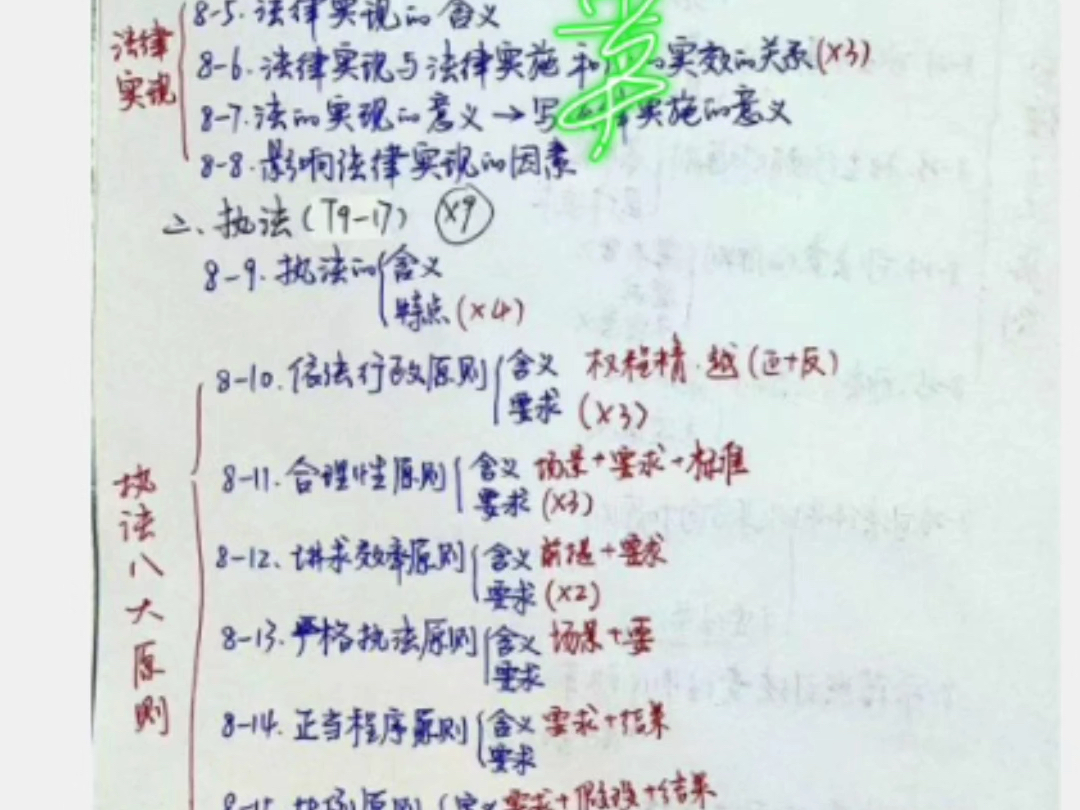 法律实现
8-5. 法律实现的含义
8-6. 法律实现与法律实施和 实效的关系(×3)
8-7. 法的实现的意义→写 实施的意义
8-8. 影响法律实现的因素
二、执法(T9-17) ×9
8-9. 执法的 含义
特点(×4)
执法八大原则
8-10. 依法行政原则 含义 权程精·越(正+反)
要求 (×3)
8-11. 合理性原则 含义 场景+要求+标准
要求 (×3)
8-12. 讲求效率原则 含义 前提+要求
要求 (×2)
8-13. 严格执法原则 含义 场景+要
要求
8-14. 正当程序原则 含义 要求+结果
要求
8-15. 比例原则 含义 要求+假设+结果